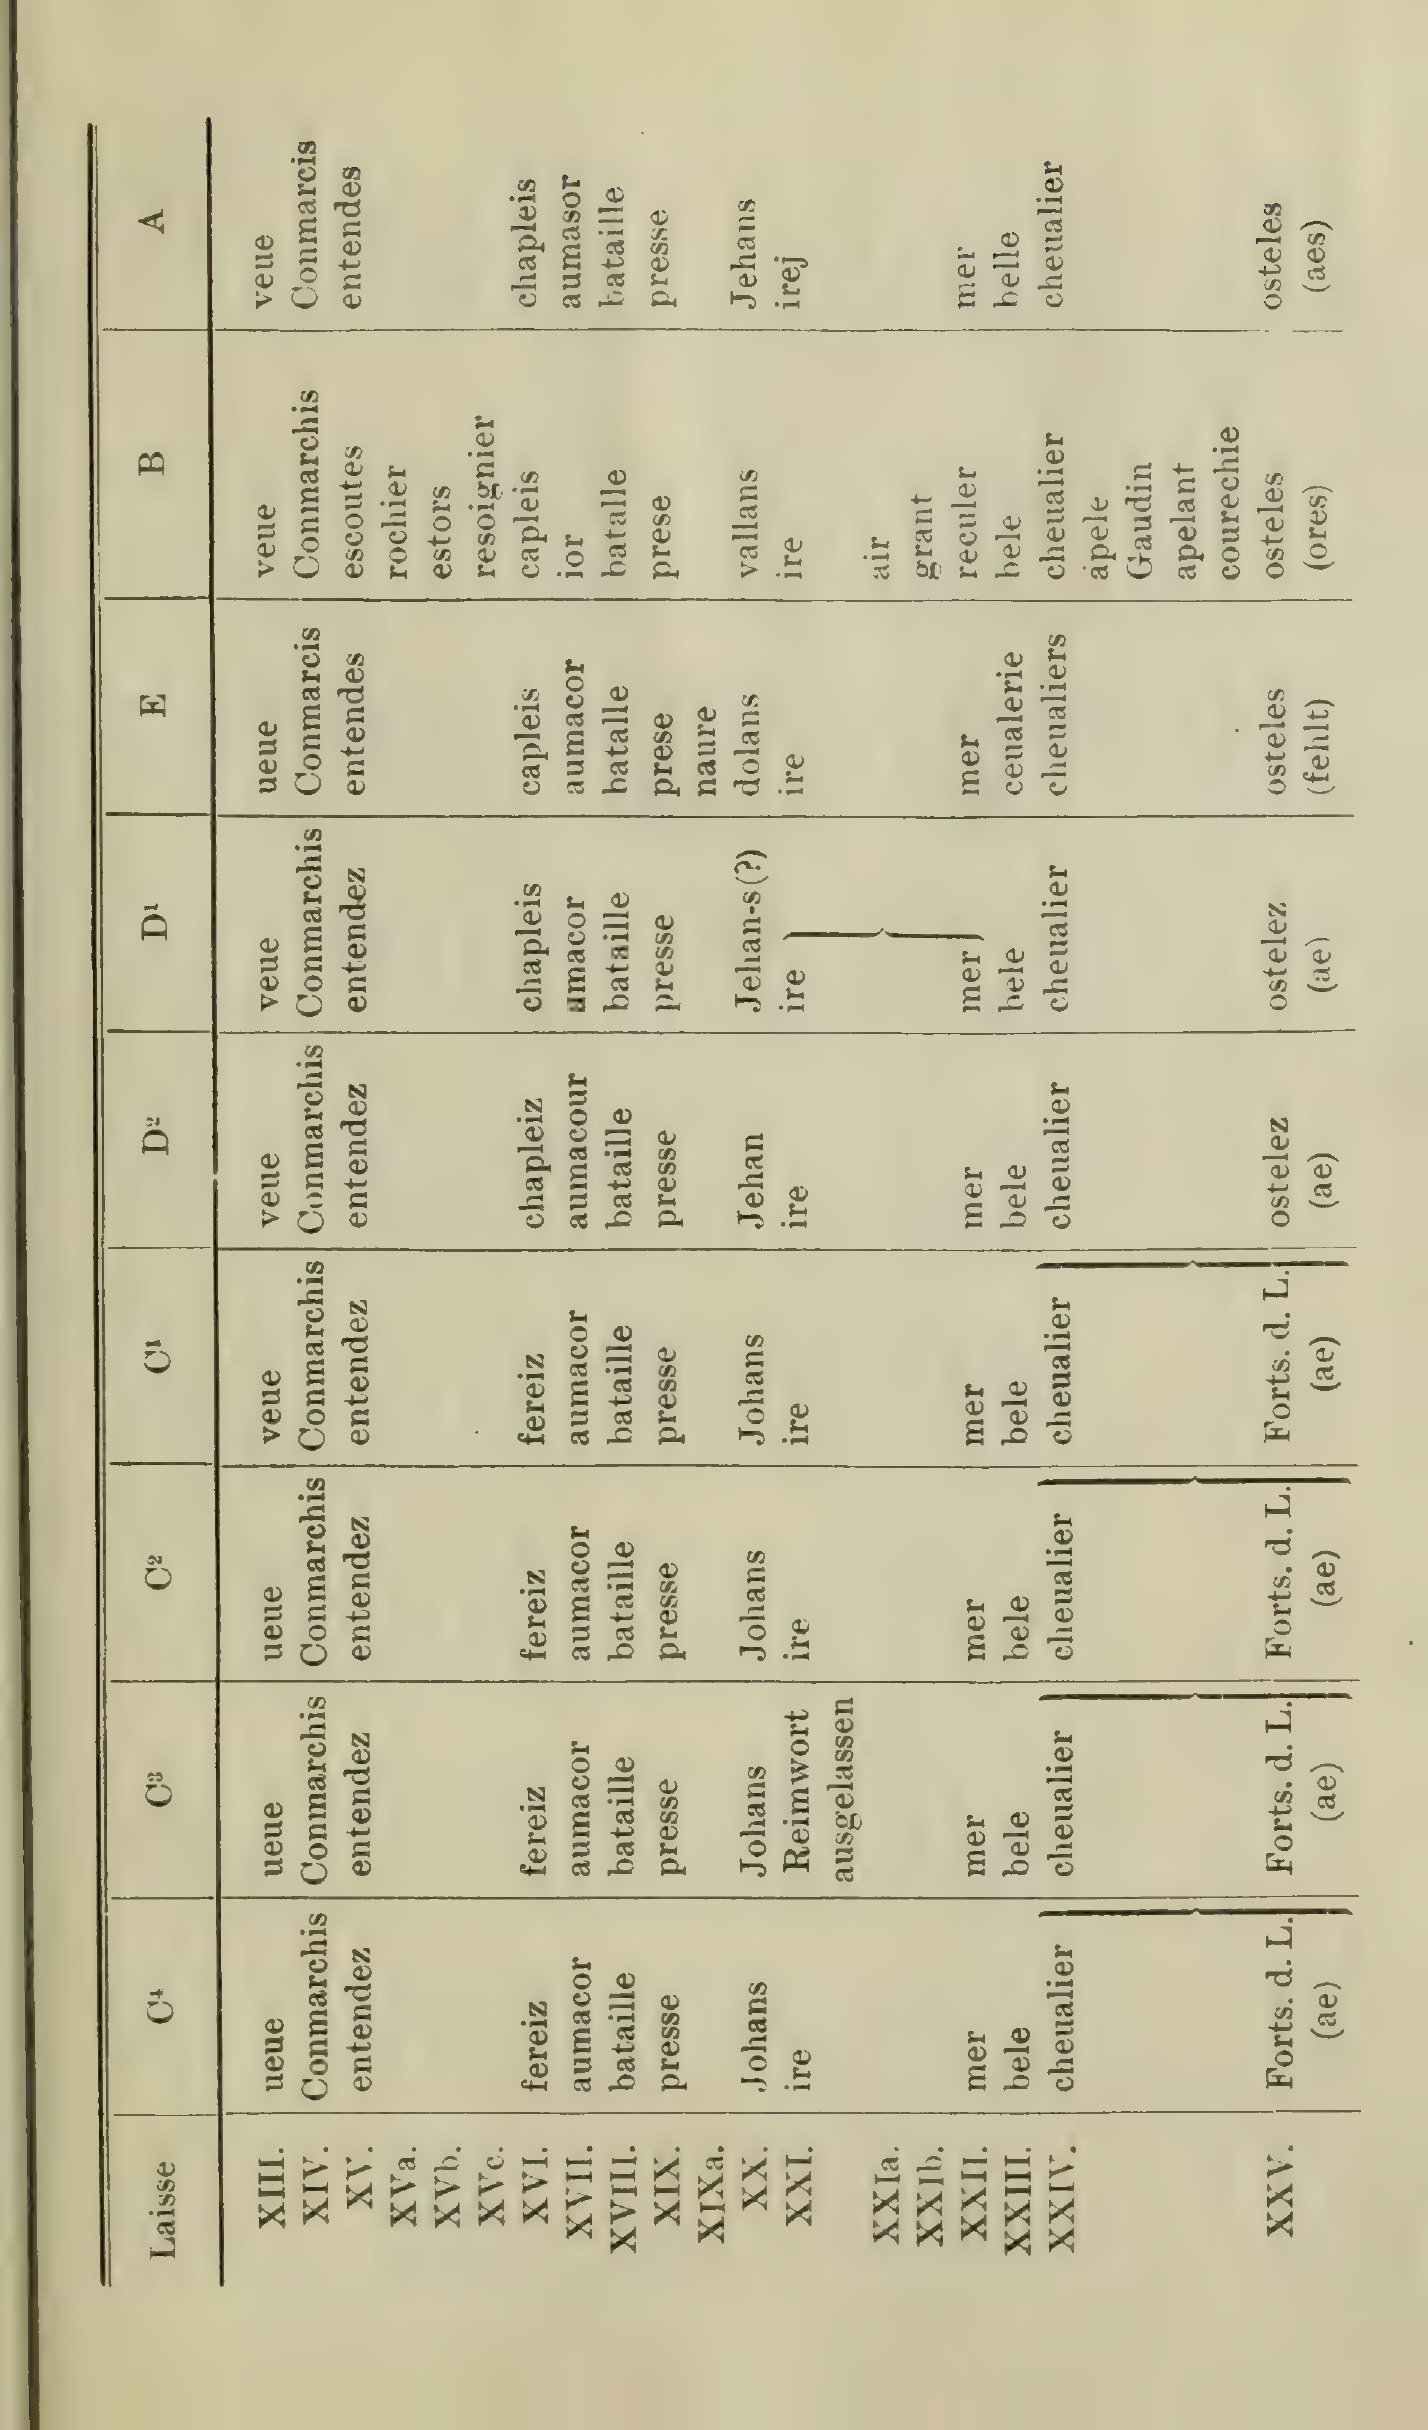 Laisse C⁴ C³ C² C¹ D² D¹ E B A
XIII. ueue ueue ueue veue veue veue ueue veue veue
XIV. Conmarchis Conmarchis Conmarchis Conmarchis Conmarchis Conmarchis Conmarcis Conmarchis Conmarcis
XV. entendez entendez entendez entendez entendez entendez entendes escoutes entendes
XVa. rochier
XVb. estors
XVc. resoignier
XVI. fereiz fereiz fereiz fereiz chapleiz chapleis capleis capleis chapleis
XVII. aumacor aumacor aumacor aumacor aumacour umacor aumacor ior aumasor
XVIII. bataille bataille bataille bataille bataille bataille batalle batalle bataille
XIX. presse presse presse presse presse presse prese prese presse
XIXa. naure
XX. Johans Johans Johans Johans Jehan Jehan-s(?) dolans vallans Jehans
XXI. ire Reimwort ire ire ire ire ire ire irej
ausgelassen
XXIa. air
XXIb. grant
XXII. mer mer mer mer mer mer mer reculer mer
XXIII. bele bele bele bele bele bele ceualerie bele belle
XXIV. cheualier cheualier cheualier cheualier cheualier cheualier cheualiers cheualier cheualier
apele
Gaudin
apelant
courechie
XXV. Forts. d. L. Forts. d. L. Forts. d. L. Forts. d. L. ostelez ostelez osteles osteles osteles
(ae) (ae) (ae) (ae) (ae) (ae) (fehlt) (ores) (aes)